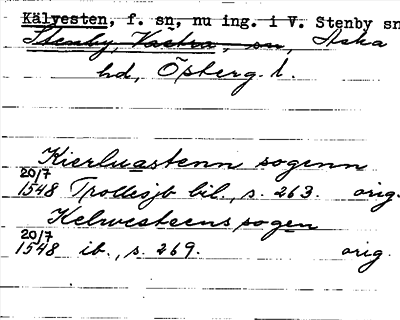 Kälvesten, f. sn, nu ing. i V. Stenby sn
Stenby, Västra, sn, Aska
hd, Öpberg. l.
Kierluastenn sogenn
20/7
1548 Trollesjb bil., s. 263. orig.
Kelwesteens sogen
20/7
1548 ib., s. 269. orig.